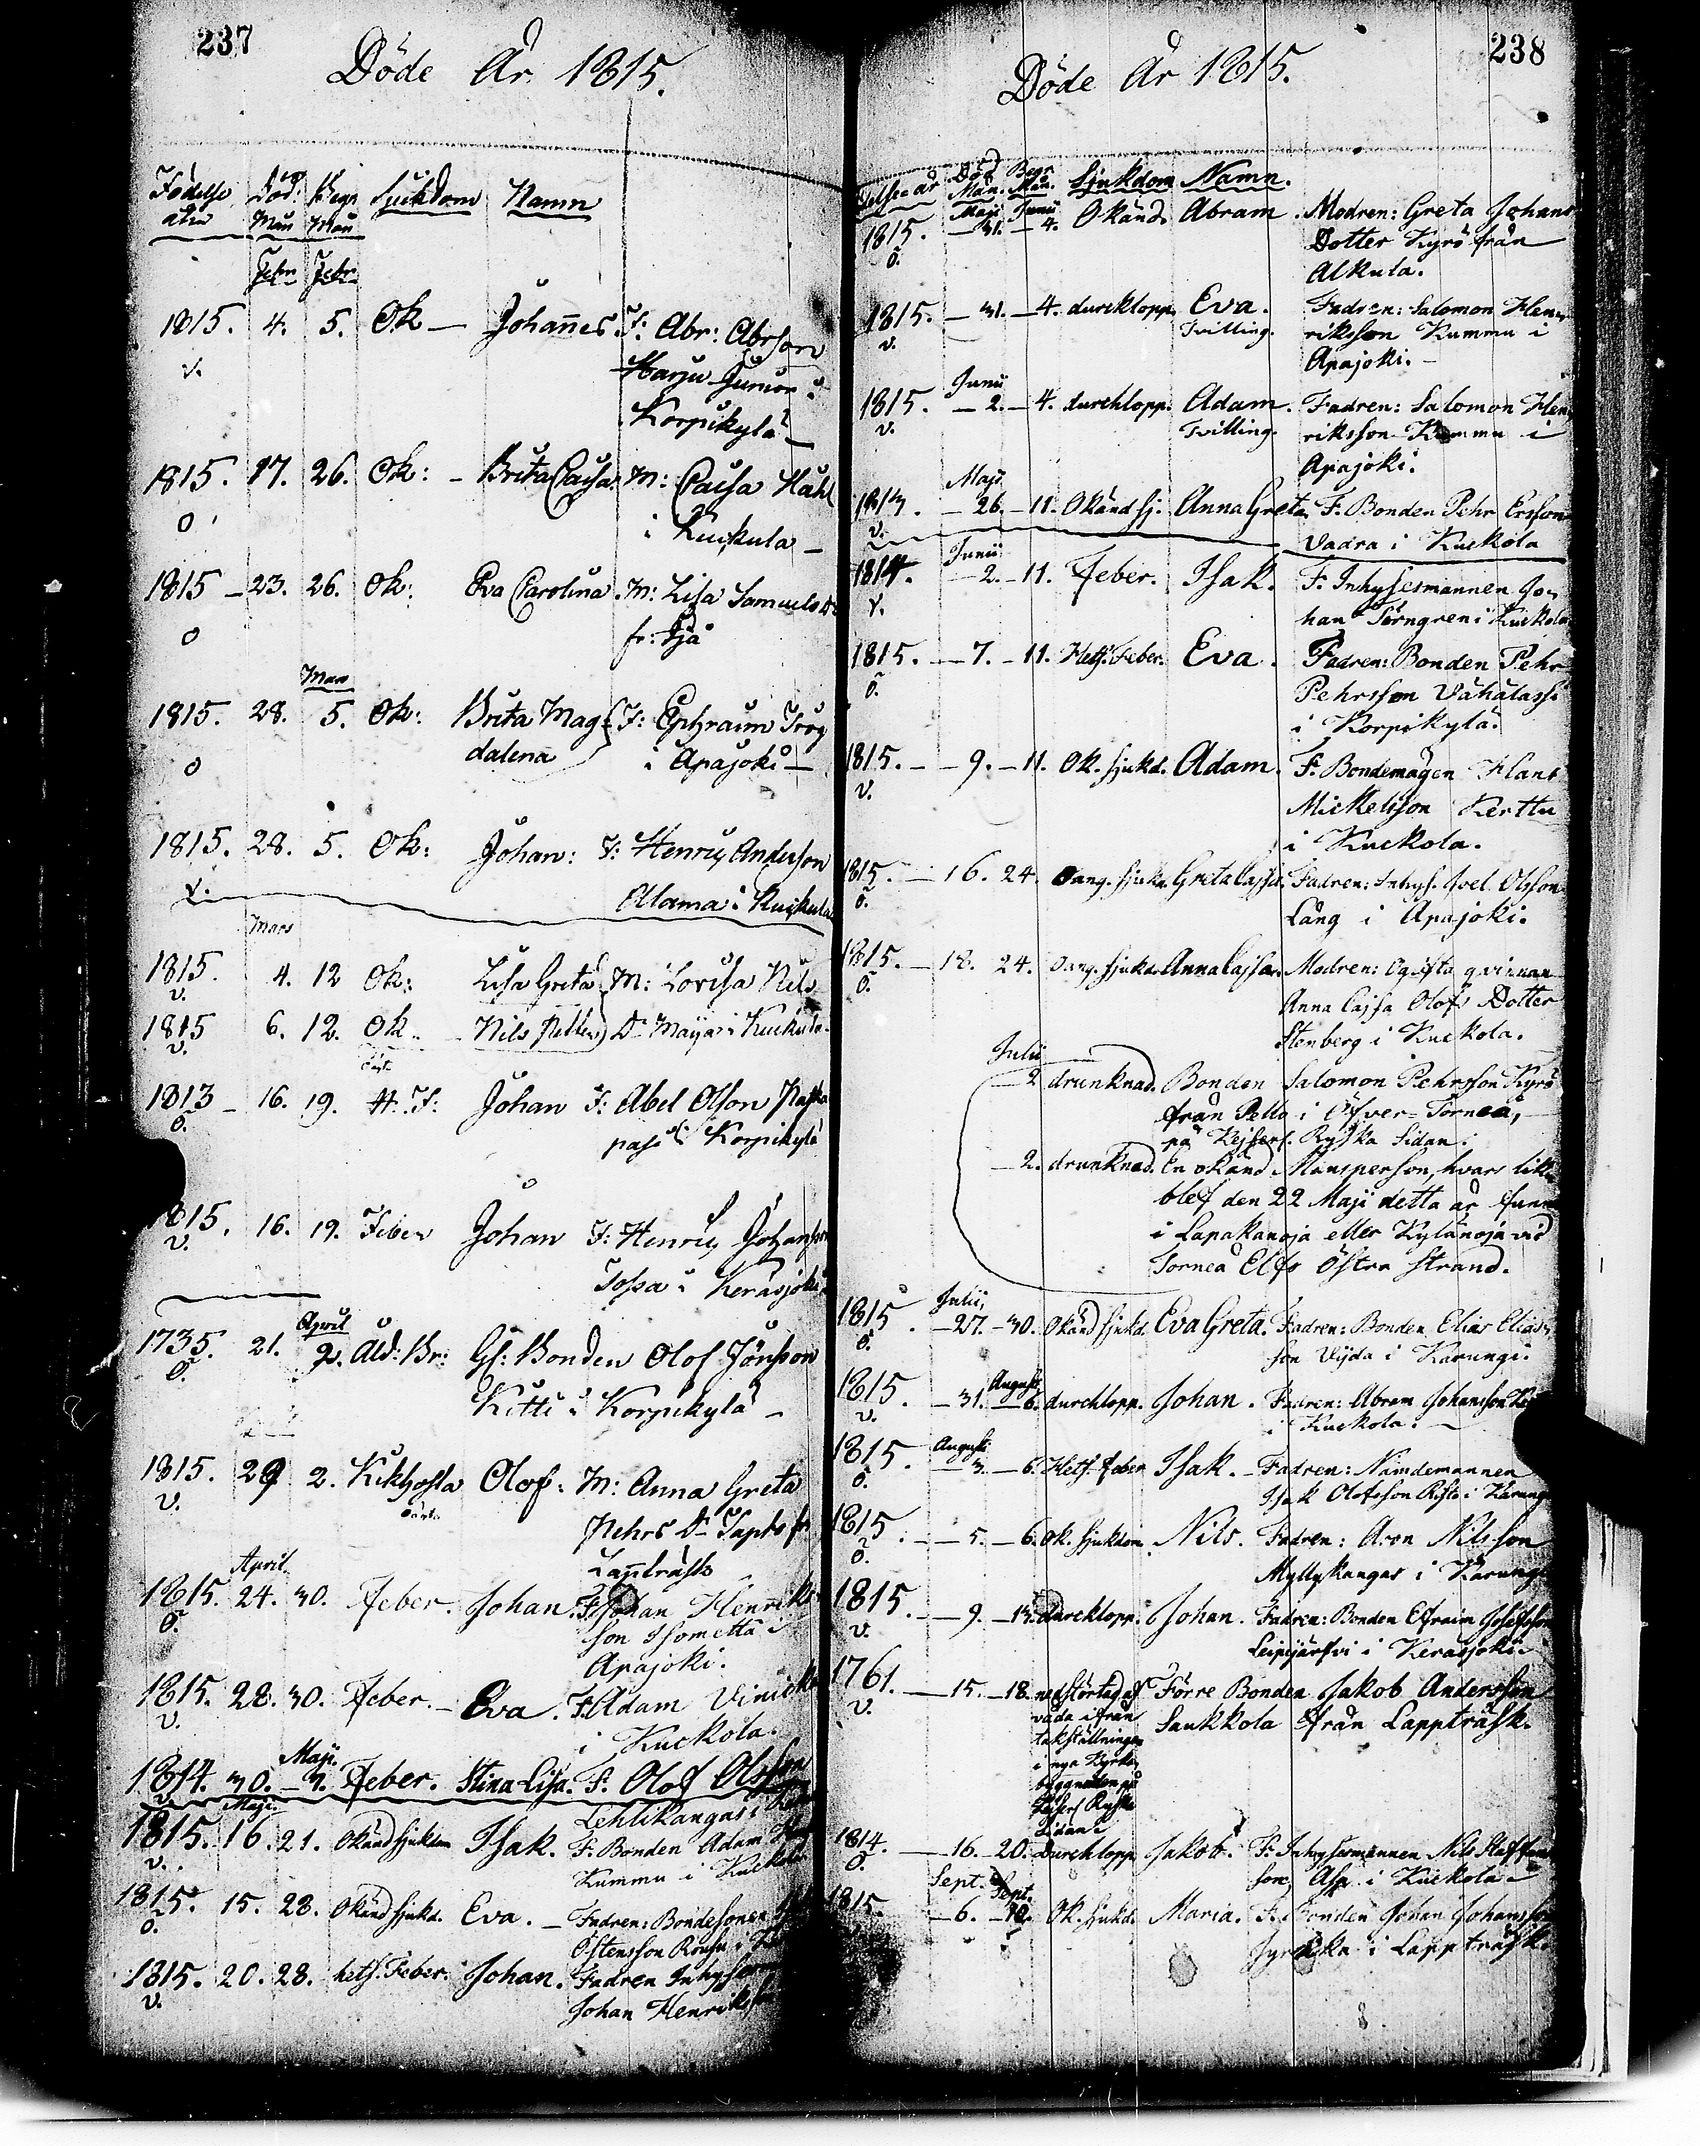 237
Döde År 1815.
Födelse Död. Begr Sjuckdom Namn
åhr Mån Mån
Febr Febr
1815. 4. 5. Ok — Johannes. F: Abr: Abrson
v. Harju Junior i
Korpikylä —
1815. 17. 26. Ok: — Brita Caisa. M: Caisa
o i Kuckula —
1815 — 23. 26. Ok: Eva Carolina. M: Lisa Samuels
o fr:
Mars
1815. 28. 5. Ok: Brita Mag- F: Ephraim
o dalena i Apajoki —
1815. 28. 5. Ok: Johan: F: Henric Anderson
v. Alama i Kuckula
Mars
1815. 4. 12 Ok: Lisa Greta M: Lovisa Nils
v.
1815 6. 12. Ok Nils Petter D: Maija i Kuckula.
v.
1813 — 16. 19. H. F: Johan F: Abel Olson
ö. i Korpikylä
1815. 16. 19. Feber Johan F: Henric Johanson
v. i Kerasjoki
April
1735. 21. 2. Åld: Br: Gf: Bonden Olof Jönsson
ö. Kitti i Korpikylä —
1815. 29 2. Kikhosta Olof: M: Anna Greta
v. Pehrs D:
Lappträsk
April.
1815. 24. 30. Feber. Johan. F. Johan Henriks
ö. son Isometta i
Apajoki.
1815. 28. 30. Feber. — Eva. F. Adam
v. i Kuckola.
Maji
1814. 30. — 7. Feber. Stina Lisa. F. Olof Olsson
v. Lehtikangas i
Maji
1815. 16. 21. Okänd sjukdom Isak. F. Bonden Adam
v. Kummu i Kuckola
1815. 15. 28. Okänd sjukd. Eva. — Fadren: Bondesonen
ö. Östensson i
1815. 20. 28. hets. Feber. Johan. Fadren Inhyses
v. Johan Henriksson
238
Döde År 1815.
år Död Begr. Sjukdom Namn.
Mån. Mån.
Maji Junii
1815. — 31. — 4. Okänd. Abram. Modren: Greta Johans
ö. Dotter Kyrö från
Alkula.
1815. — 31. — 4. durcklopp. Eva. Fadren: Salomon Hen-
v. Tvilling. riksson Kummu i
Apajoki. —
Junii
1815. — 2. — 4. durchlopp. Adam. Fadren: Salomon Hen-
v. Tvilling. riksson Kummu i
Apajoki.
Maji
1813. — 26. — 11. Okänd sj. Anna Greta F. Bonden Pehr Ersson
v. Vadra i Kuckola
Junii
1814. — 2. — 11. Feber. Isak. F. Inhysesmannen Jo-
v. han Törngren i Kuckola
1815. — 7. — 11. Hets. Feber. Eva. Fadren: Bonden Pehr
ö. Pehrsson
i Korpikylä.
1815. — 9. — 11. Ok. sjukd. Adam. F. Bondemågen Hans
v. Mickelsson Kerttu
i Kuckola.
1815. — 16. 24. Oang. sjukd. Greta Cajsa. Fadren: Inhys. Olsson
ö. Lång i Apajoki.
1815. — 18. 24. Oang. sjukd. Anna Cajsa. Modren: Ogifta qvinnan
ö. Anna Cajsa Olofs Dotter
Stenberg i Kuckola.
Julii
2 drunknad. Bonden Salomon Pehrsson Kyrö
från Pello i Öfver-Torneå,
på Kejserl. Ryska Sidan.
— 2. drunknad. En okänd Mansperson, hvars lik
blef den 22 Maji detta år
i Lapakanoja eller Kylänoja vid
Torneå Elfs östra strand.
Julii,
1815. — 27. — 30. Okänd sjukd. Eva Greta. Fadren: Bonden Elias Elias-
ö. son i Karungi.
Augusti
1815. — 31. — 6. durchlopp. Johan. Fadren: Abram Johansson
v. i Kuckola. —
Augusti
1815. — 3. — 6. Hets. Feber Isak. — Fadren: Nämdemannen
ö. Isak Olofsson Risto i Karungi
1815. — 5. — 6. Ok. sjukdom. Nils. Fadren: Aron Nilsson
ö. Myllykangas i Karungi
1815. — 9. — 13. durcklopp. Johan. Fadren: Bonden Efraim Josefsson
v. i Kerasjoki
1761. — 15. — 18. nedstörtad af Förre Bonden Jakob Andersson
v. våda ifrån Saukkola från Lappträsk.
takställningen
i nya Kyrko
byggnaden på
Kejserl Ryska
Sidan.
1814. — 16. — 20. Durchlopp Jakob. F. Inhysesmannen Nils Staffans
ö. son, i Kuckola —
Sept. Sept.
1815. — 6. — 10. Ok. sjukd. Maria. F. Bonden Johan Johansson
i Lappträsk.